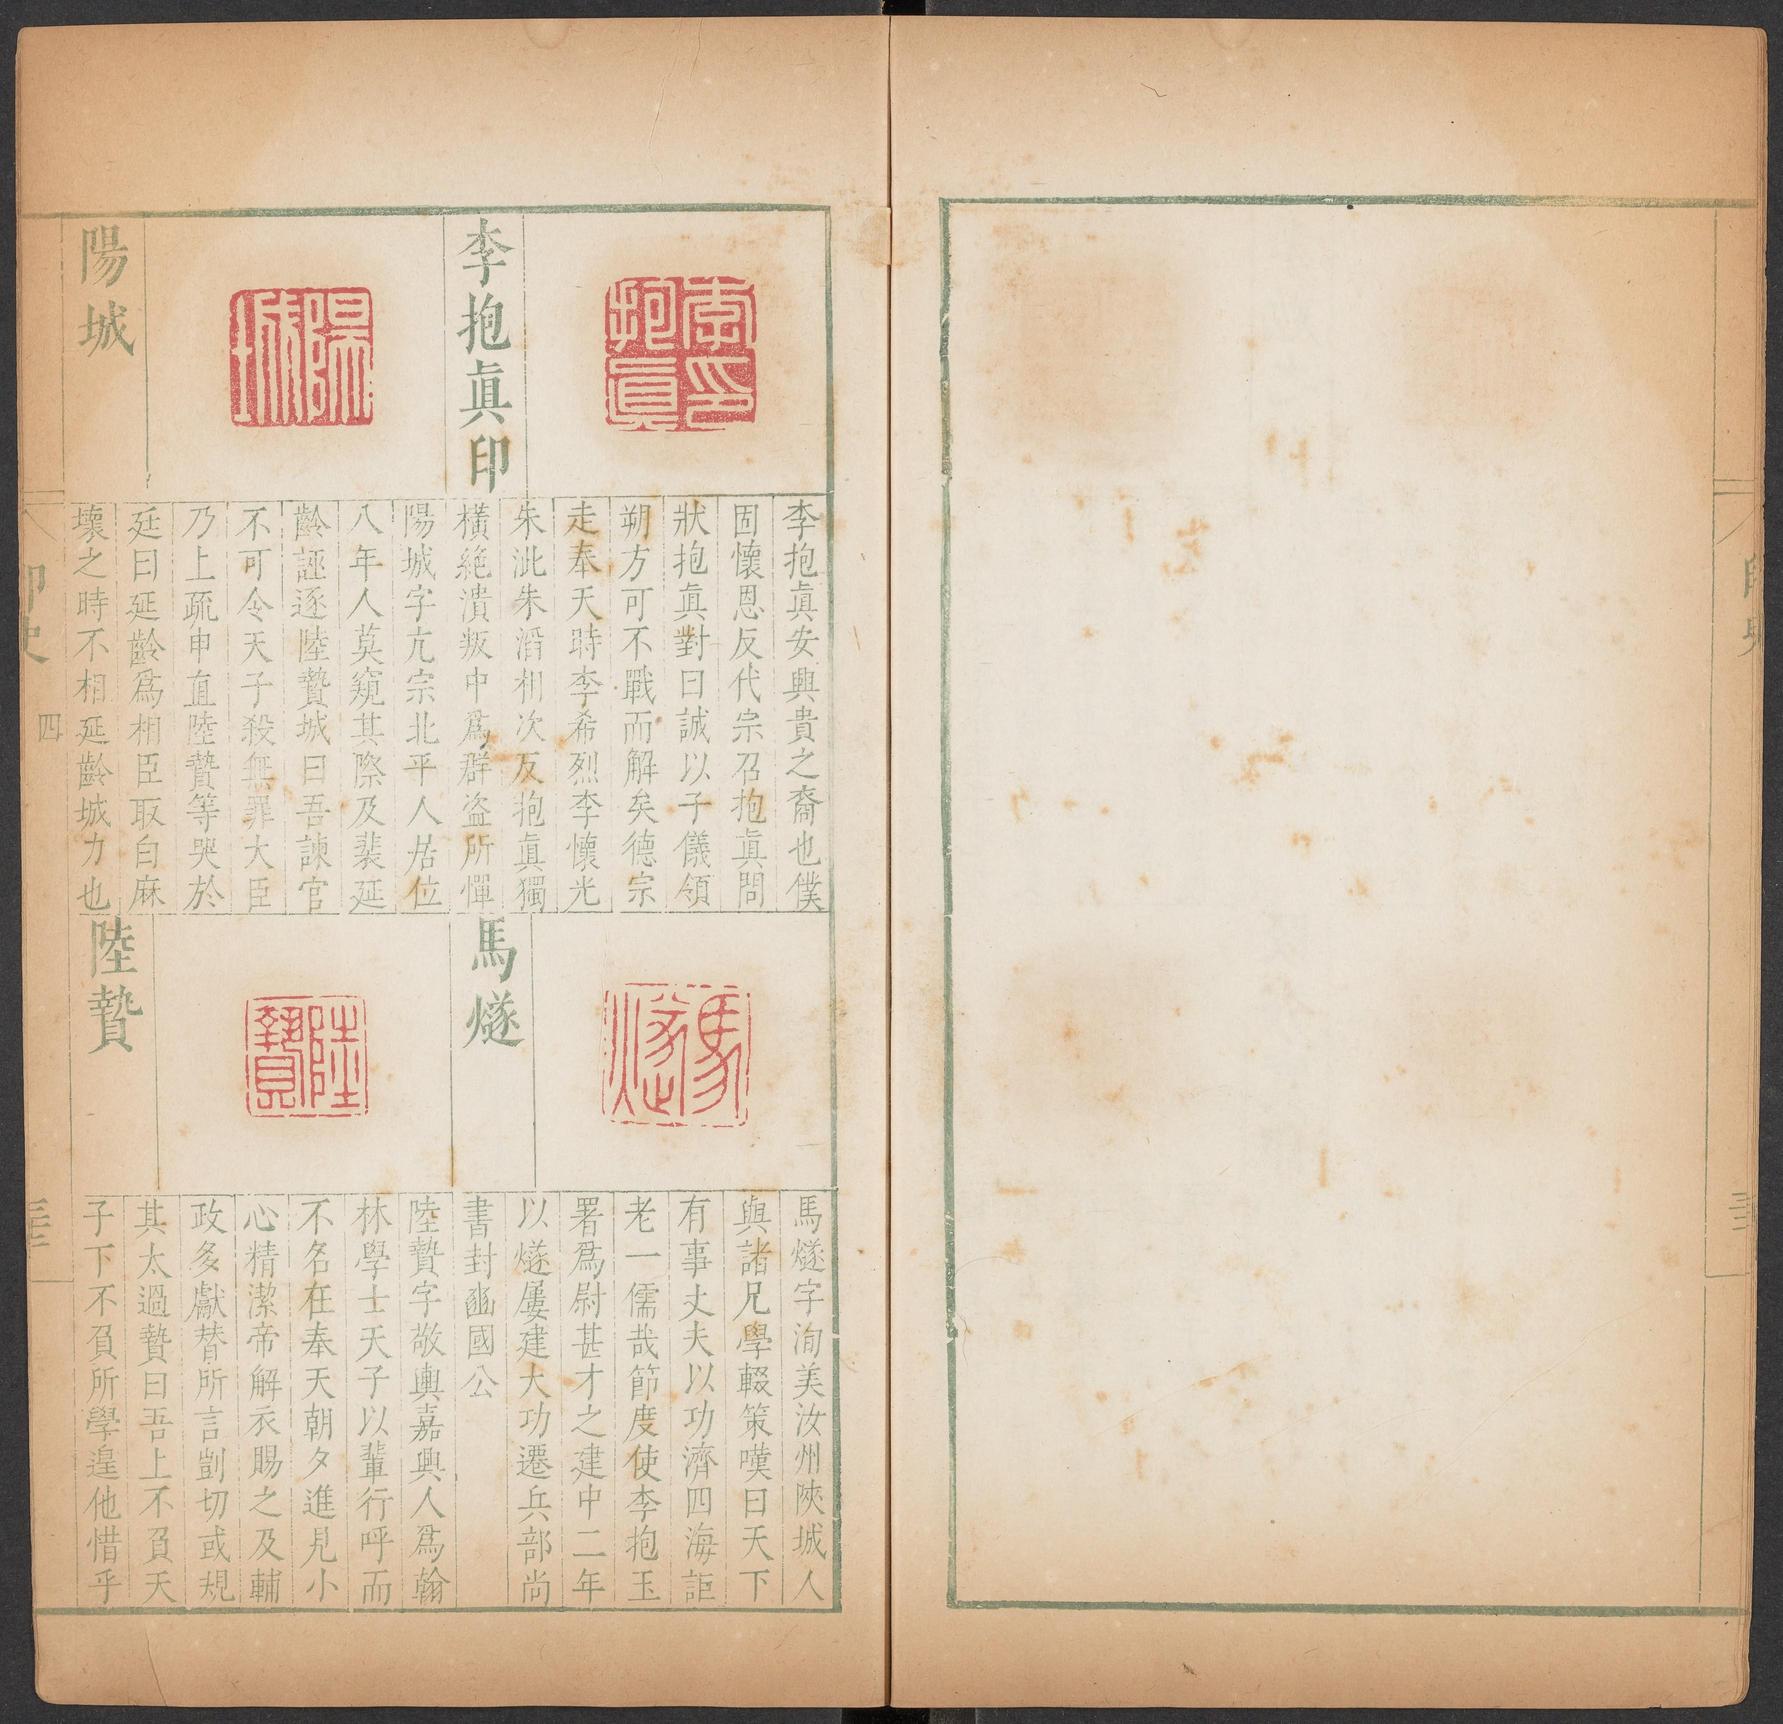 李抱眞印
李抱眞安興貴之裔也僕
固懷恩反代宗召抱眞問
狀抱眞對曰誠以子儀領
朔方可不戰而解矣德宗
走奉天時李希烈李懷光
朱泚朱滔相次反抱眞獨
橫絶潰叛中爲群盜所憚
陽城
陽城字亢宗北平人居位
八年人莫窺其際及裴延
齡誣逐陸贄城曰吾諫官
不可令天子殺無罪大臣
乃上疏申直陸贄等哭於
廷曰延齡爲相臣取白麻
壞之時不相延齡城力也
馬燧
馬燧字洵美汝州陝城人
與諸兄學輟策嘆曰天下
有事丈夫以功濟四海詎
老一儒哉節度使李抱玉
署爲尉甚才之建中二年
以燧屢建大功遷兵部尚
書封豳國公
陸贄
陸贄字敬輿嘉興人爲翰
林學士天子以輩行呼而
不名在奉天朝夕進見小
心精潔帝解衣賜之及輔
政多獻替所言剴切或規
其太過贄曰吾上不負天
子下不負所學遑他惜乎
印史
四